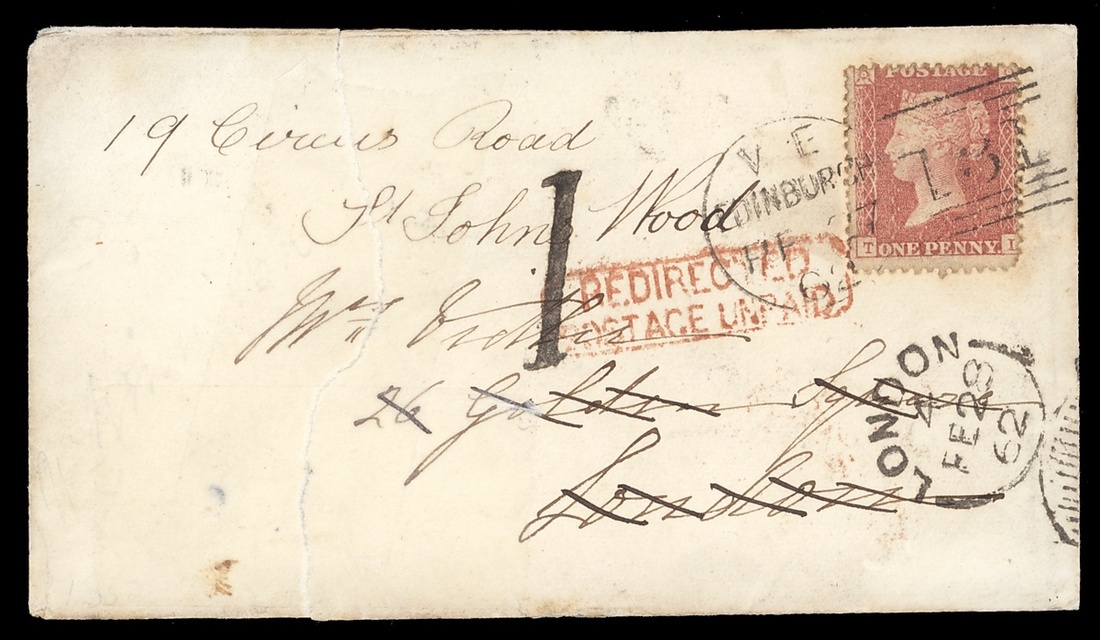 19 Circus Road
St Johns Wood
1
REDIRECTED
POSTAGE UNPAID
Mrs
26 Golden Square
London
POSTAGE
T ONE PENNY. I
V E
EDINBURGH
62
LONDON
4
FE 28
62